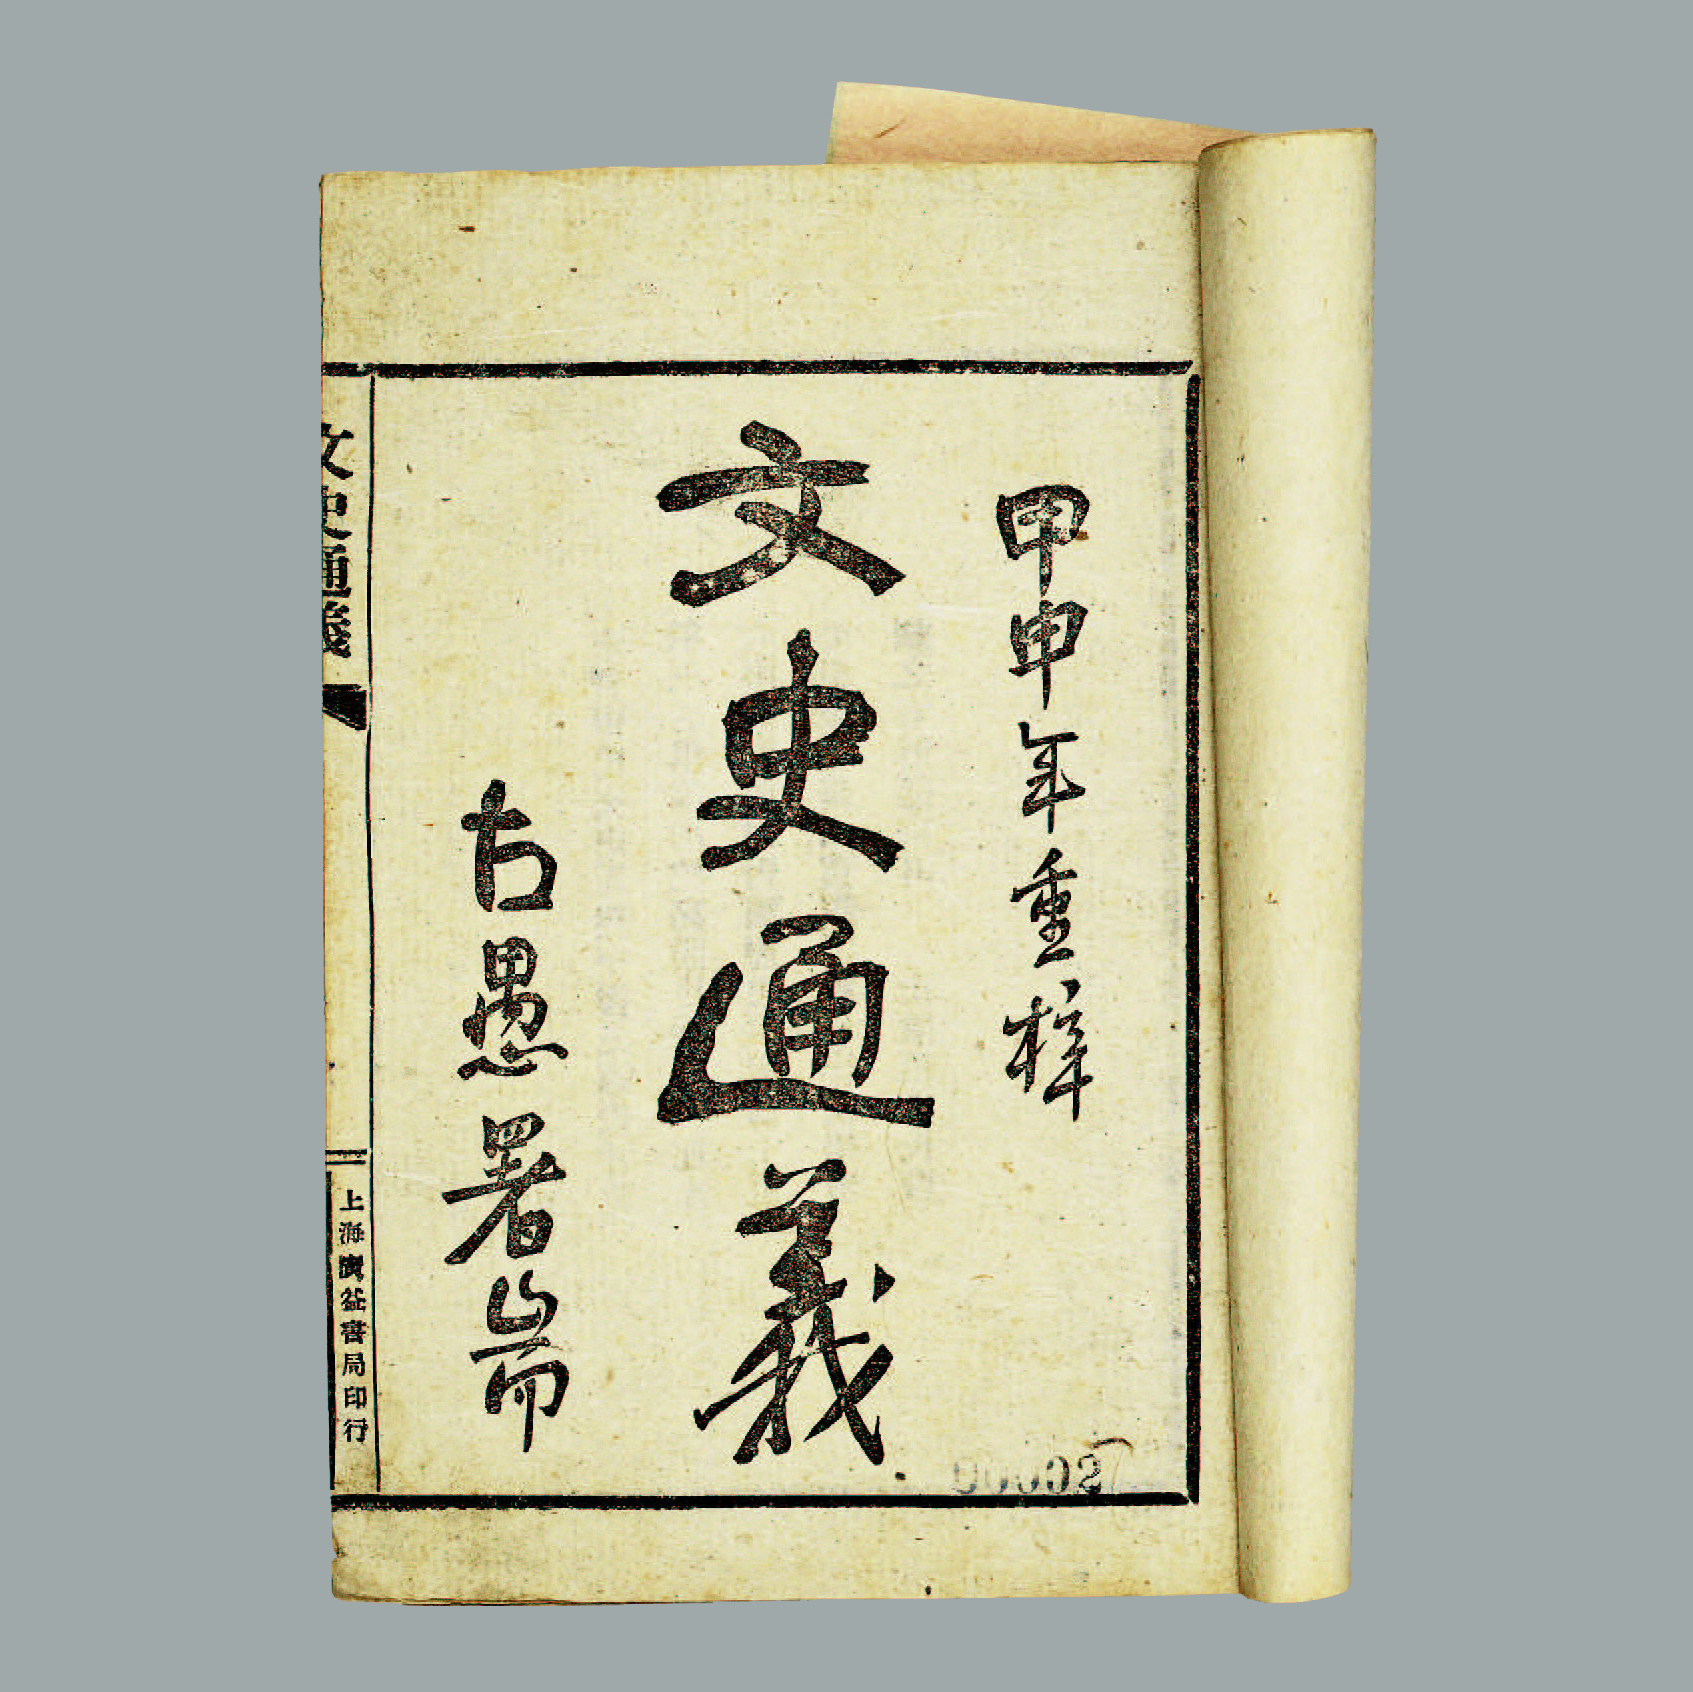 甲申年重梓
文史通義
古愚署耑
文史通義
上海廣益書局印行
00002